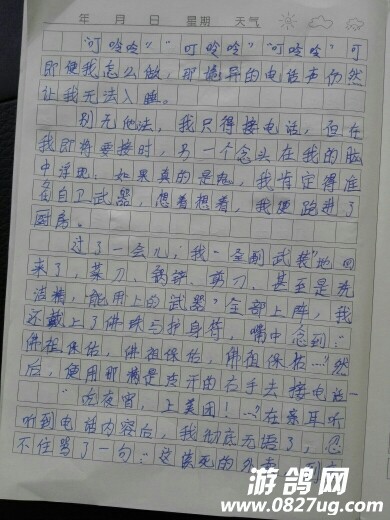 年 月 日 星期 天气
“叮呤呤” “叮呤呤” “叮呤呤” 可
即便我怎么做，那诡异的电话声仍然
让我无法入睡。
别无他法，我只得接电话，但在
我即将要接时，另一个念头在我的脑
中浮现：如果真的是鬼，我肯定得准
备自卫武器，想着想着，我便跑进了
厨房。
过了一会儿，我“全副武装”地回
来了，菜刀、锅铲、剪刀、甚至是洗
洁精，“能用上的武器”全部上阵，我
还戴上了佛珠与护身符，嘴中念到：“
佛祖保佑，佛祖保佑，佛祖保祐…”然
后，使用那
右手去接电话一
“吃夜宵，上美团！…”在亲耳听
到电话内容后，我彻底无语了，忍
不住骂了一句：“这该死的
游鸽网
www.0827ug.com